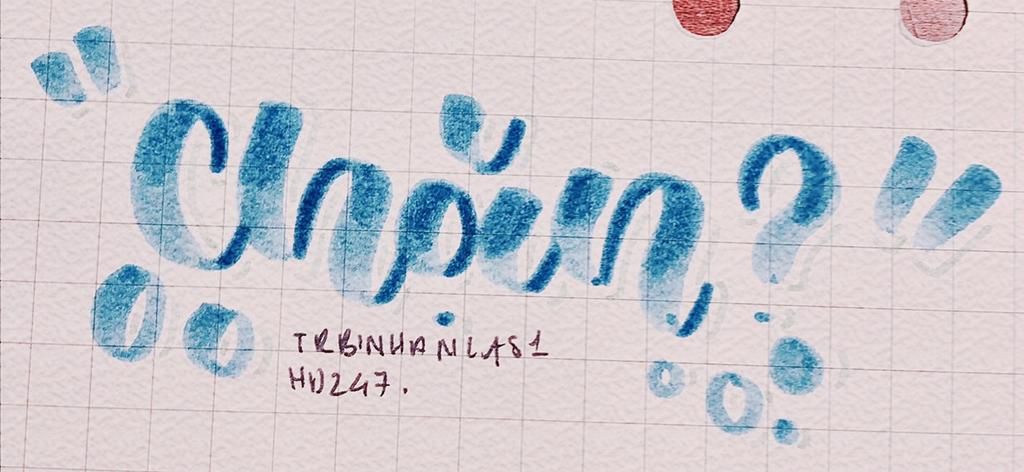 "Chặn?"
TRBINHANLAS1
HD247.